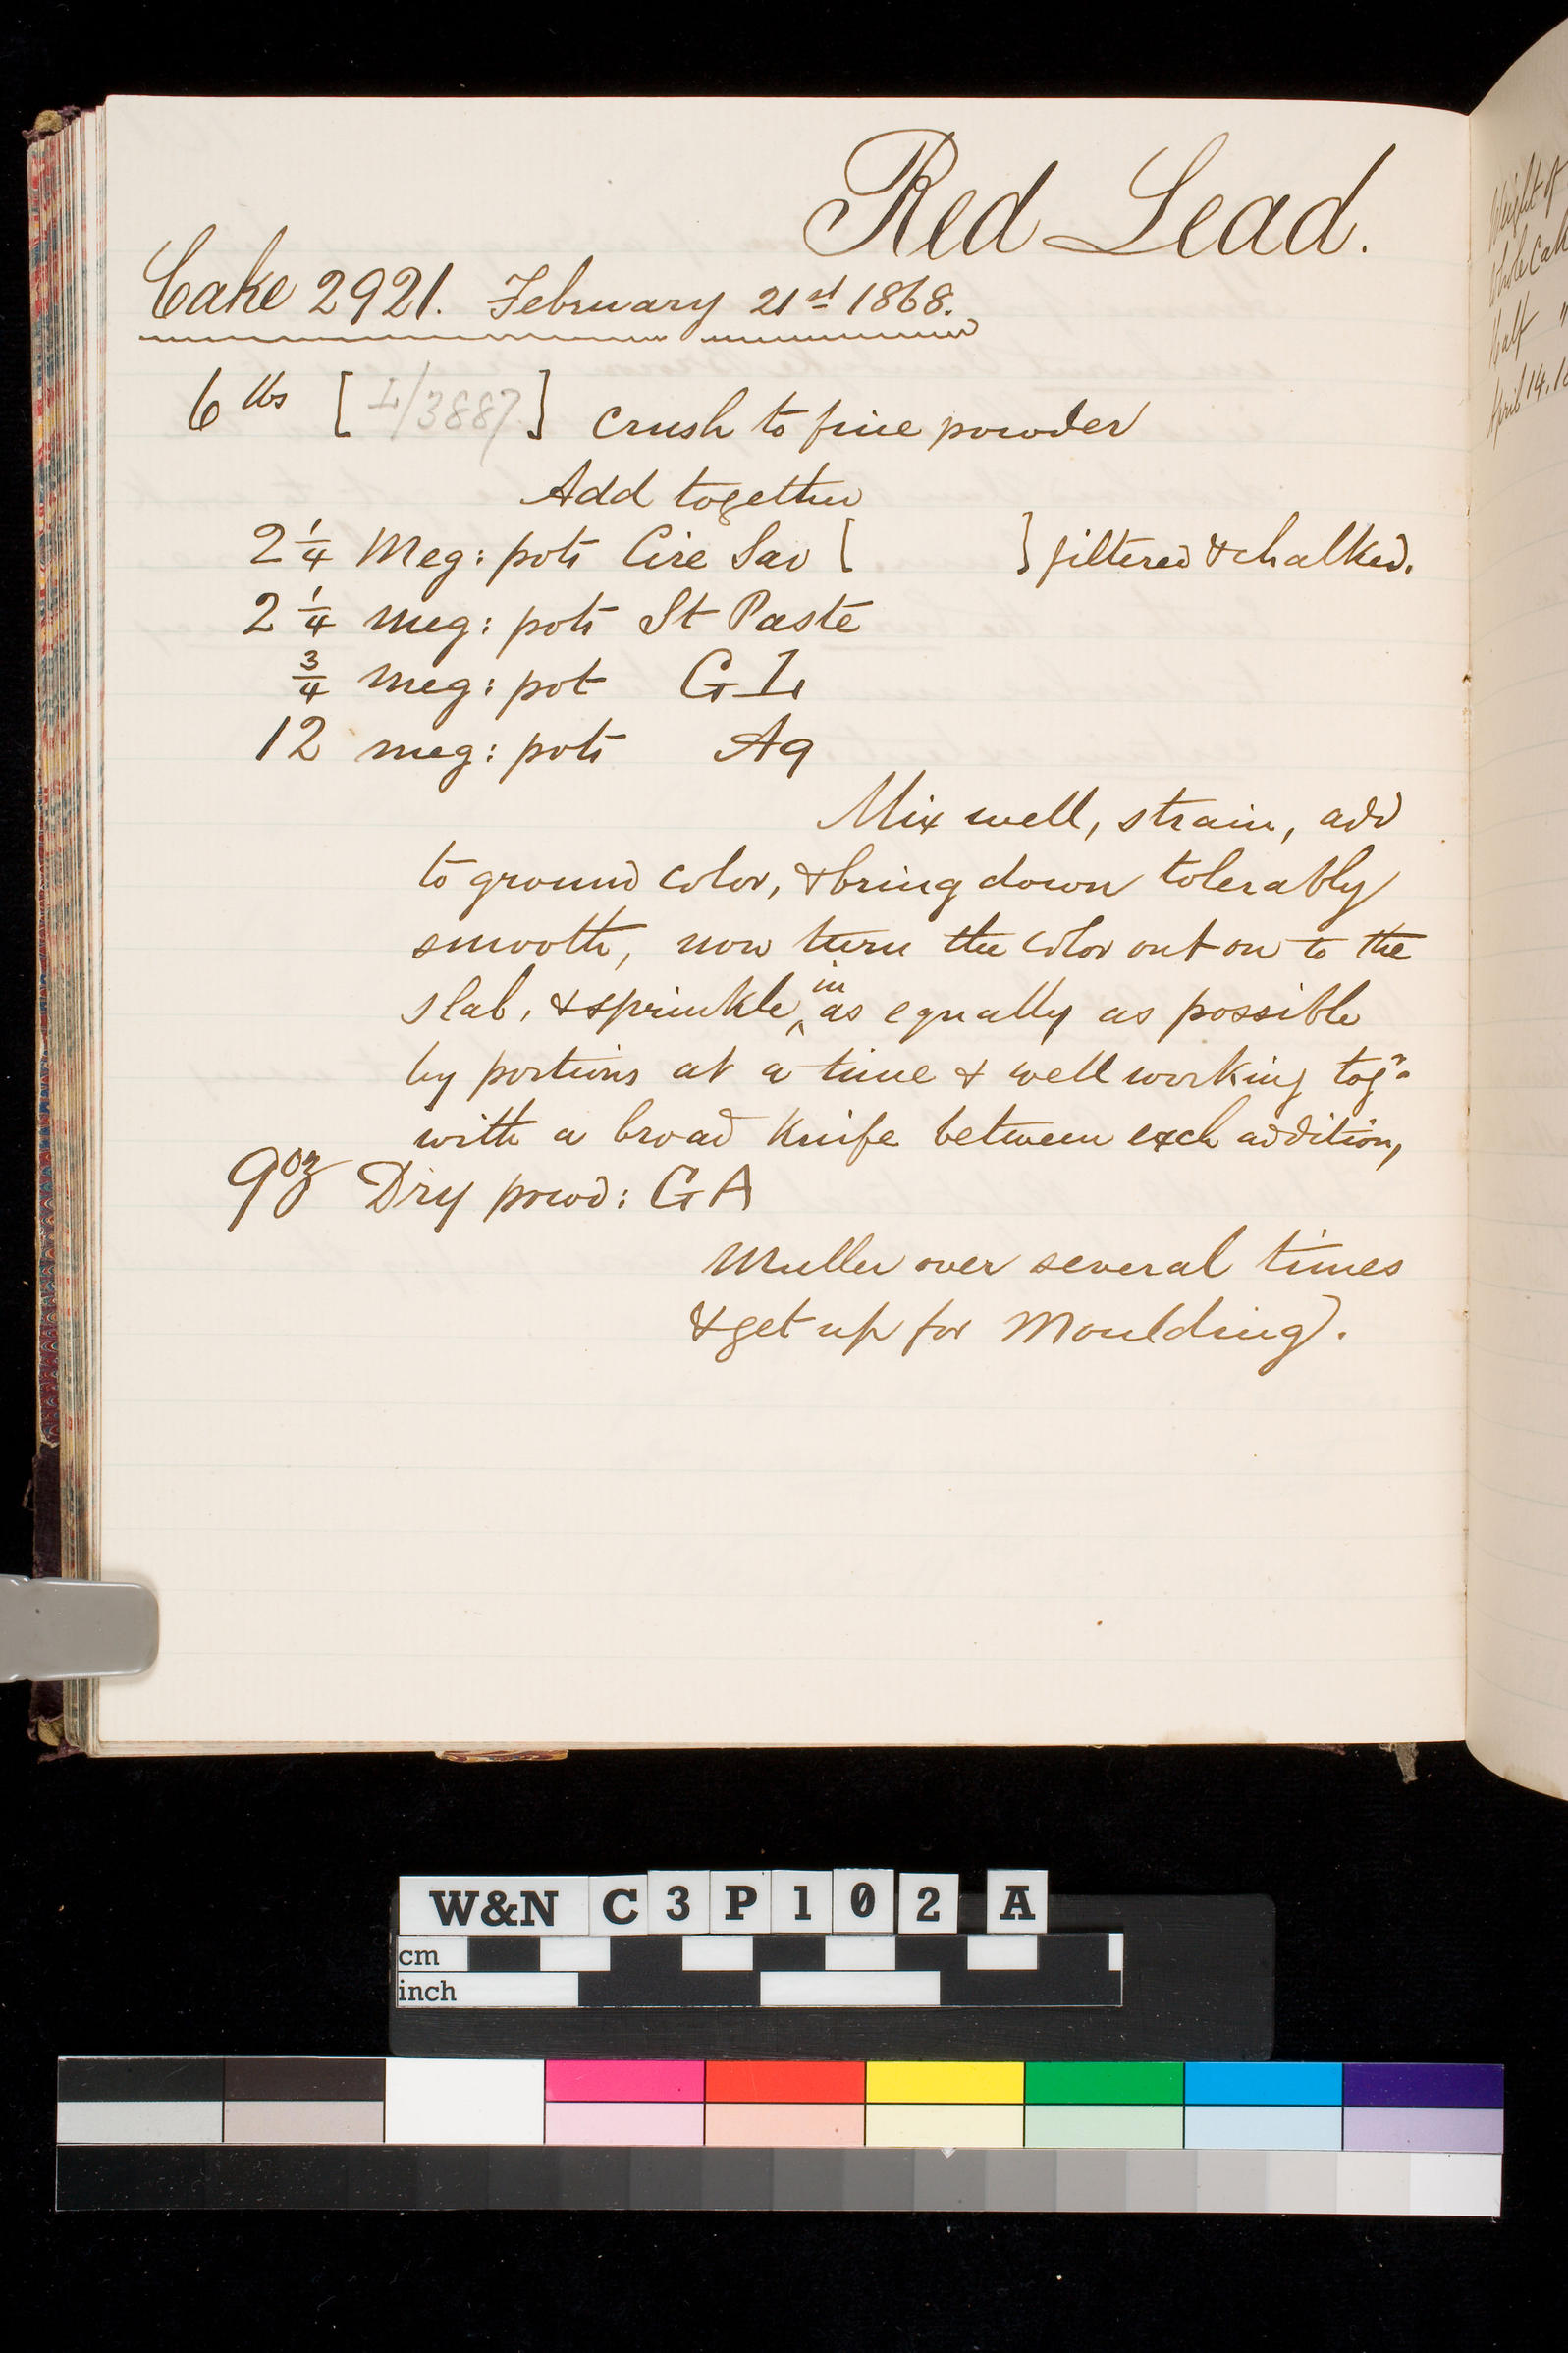 Red Lead.
Cake 2921. February 21st 1868.
6 lbs [I/3887] crush to fine powder
Add together
2 1/4 Meg: pots Cire Sav [ ] filtered & chalked.
2 1/4 meg: pots St Paste
3/4 meg: pot GL
12 meg: pots Aq
Mix well, strain, add
to ground color, & bring down tolerably
smooth, now turn the color out on to the
slab, & sprinkle in as equally as possible
by portions at a time & well working togr
with a broad knife between each addition,
9oz Dry powd: GA
Muller over several times
& get up for Moulding.
Weight of
Whole Cake
Half "
April 14. 18
W&N C3P102 A
cm
inch